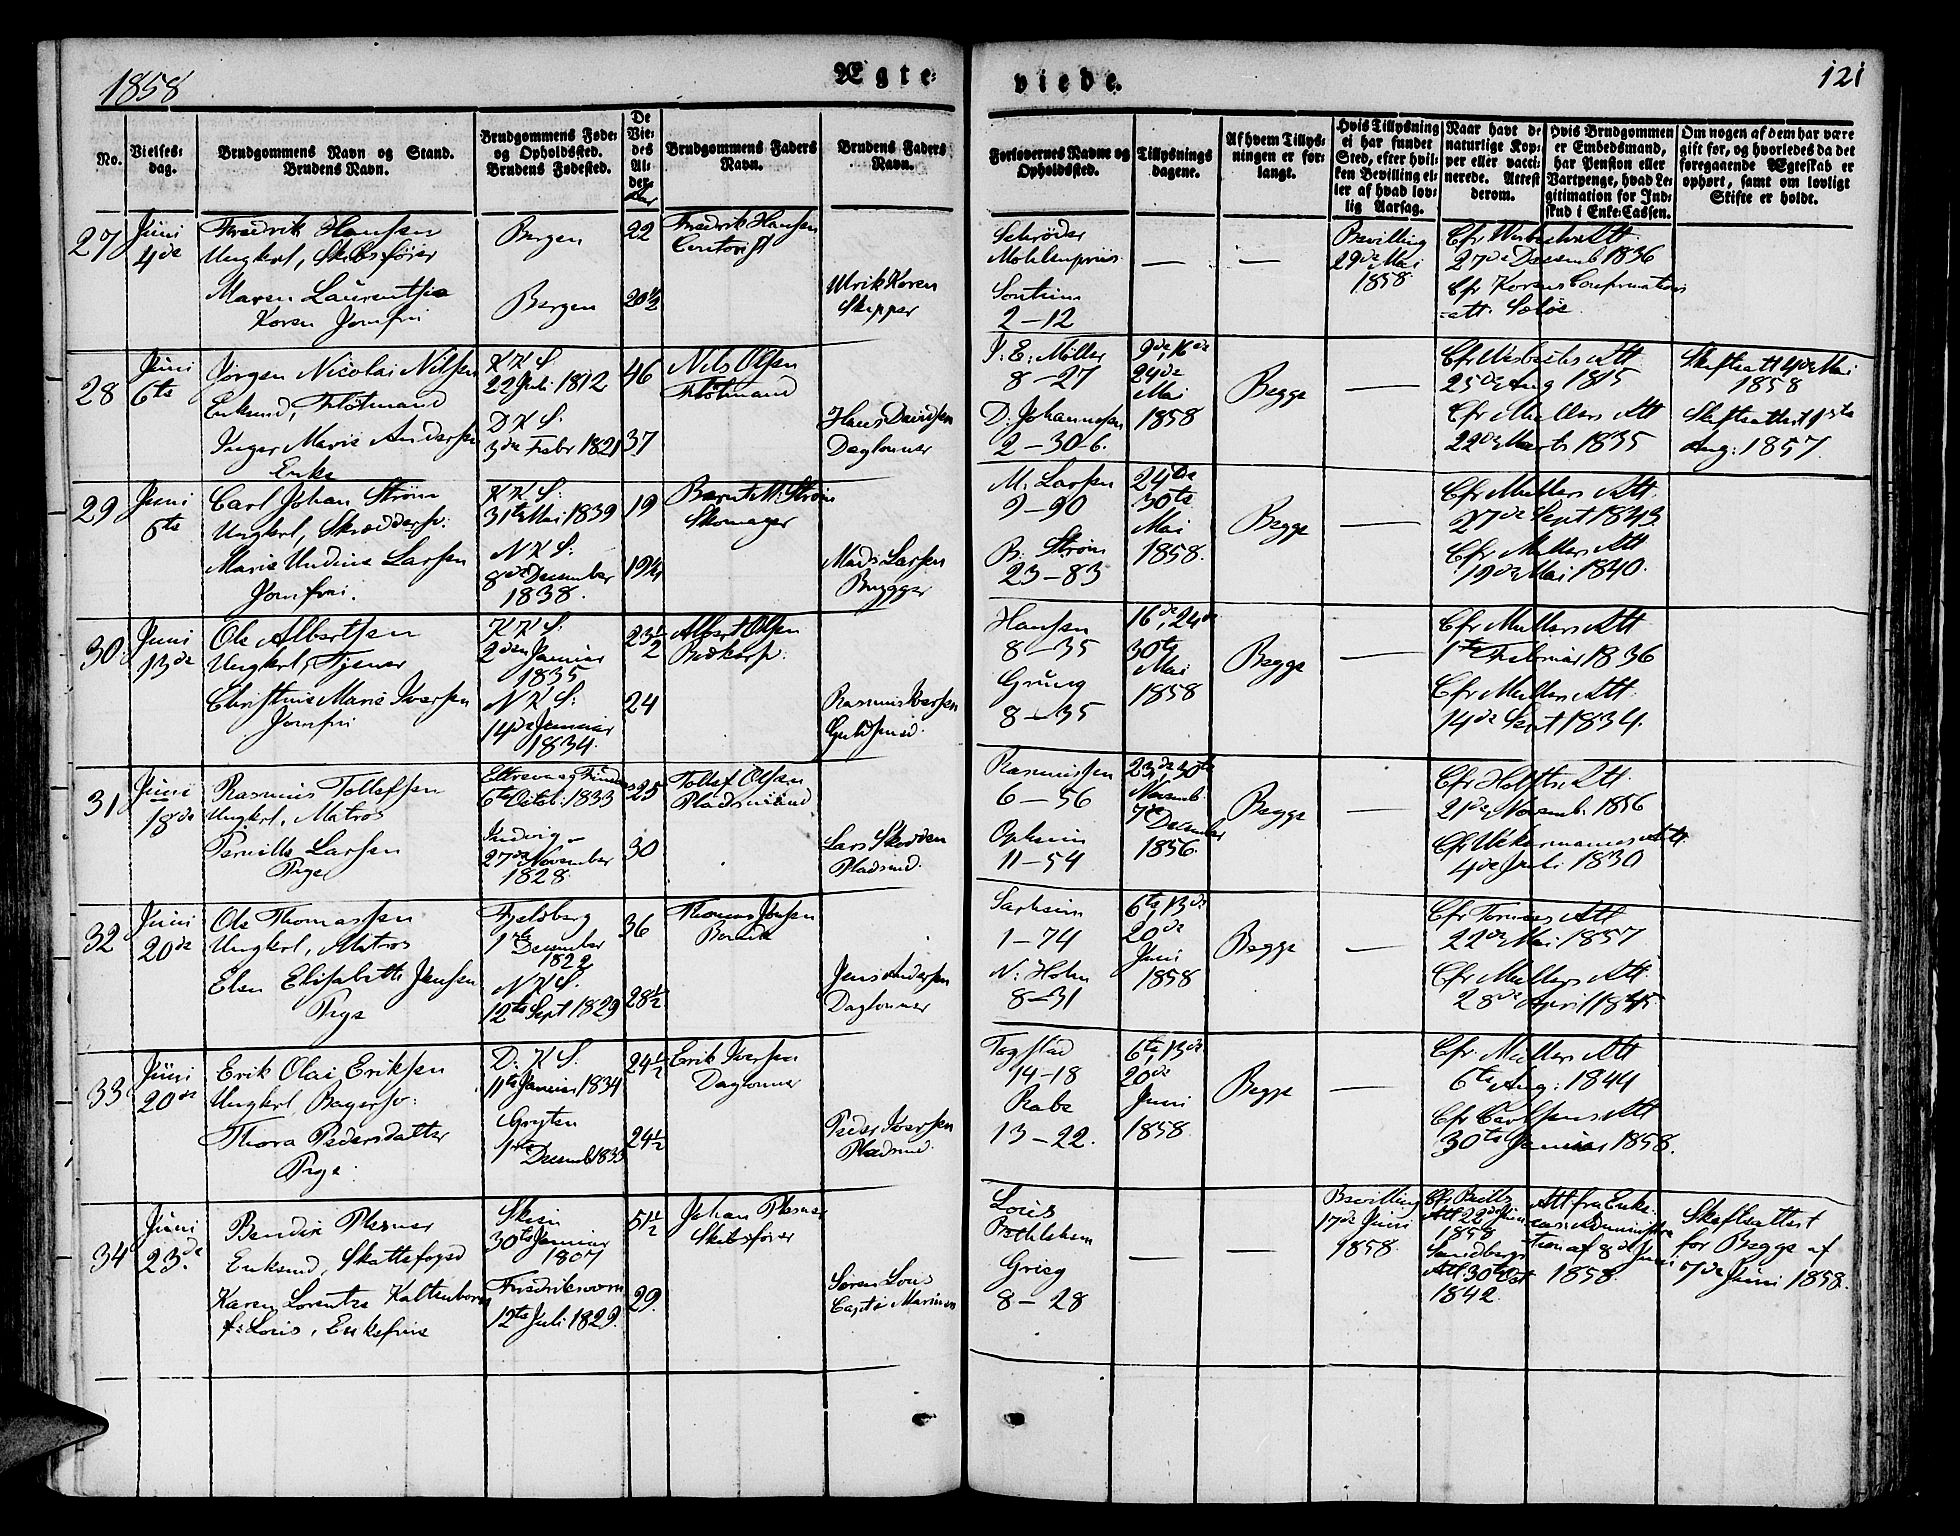 1858
Ægte-
viede.
121
No.
Vielses-
dag.
Brudgommens Navn og Stand.
Brudens Navn.
Brudgommens Føde-
og Opholdssted.
Brudens Fødested.
De
Vie-
des
Al-
der.
Brudgommens Faders
Navn.
Brudens Faders
Navn.
Forlovernes Navne og
Opholdssted.
Tillysnings
dagene.
Af hvem Tillys-
ningen er for-
langt.
Hvis Tillysning
ei har fundet
Sted, efter hvil-
ken Bevilling el-
ler af hvad lov-
lig Aarsag.
Naar havt de
naturlige Kop-
per eller vacci-
nerede. Attest
derom.
Hvis Brudgommen
er Embedsmand,
har Pension eller
Vartpenge, hvad Le-
gitimation for Ind-
skud i Enke-Cassen.
Om nogen af dem har være
gift før, og hvorledes da det
foregaaende Ægteskab er
ophørt, samt om lovligt
Skifte er holdt.
27
Juni
4de
Fredrik Hansen
Ungkrl, Skibsfører
Maren Laurentse
Koren Jomfru
Bergen
Bergen
22
20½
Fredrik Hansen
Contorist
Ulrik Koren
Skipper
Schrøder
Møhlenpriis
Sontum
2-12
—
—
Bevilling
29de Mai
1858
Cfr Wisbechs Att
27de Decemb 1836
Cfr Korens Confirmation
-att.
28
Juni
6te
Jørgen Nicolai Nilsen
Enkmd, Flötmand
Inger Marie Andersen
Enke
K K S.
22 Juli 1812
D K S:
3de Febr 1821
46
37
Nils Olsen
Flötmand
Hans Davidsen
Daglonner
J. E. Møller
8-27
D. Johannesen
2-30-6.
9de, 16de
24de
Mai
1858
Begge
—
Cfr Wisbechs Att
25de Aug 1815
Cfr Mullers Att
22de Marts 1835
Skiftsatt 4de Mai
1858
Skiftsattest 1ste
Aug: 1857.
29
Juni
6te
Carl Johan Strøm
Ungkrl, Skræddersv:
Marie Undine Larsen
Jomfru.
K K S:
31te Mai 1839
N K S:
8de December
1838.
19
19½
Bernt M. Strøm
Skomager
Mads Larsen
Brygger
M. Larsen
9-90
B. Strøm
23-83
24de
30te
Mai
1858.
Begge
—
Cfr Mullers Att
27de Sept 1843
Cfr Mullers Att
19de Mai 1840.
30
Juni
13de
Ole Albertsen
Ungkrl, Tjener
Christine Marie Iversen
Jomfru
K K S.
2den Januar
1835
N K S:
14de Januar
1834.
23½
24
Albert Olsen
Rasmus Iversen
Guldsmed.
Hansen
8-35
8-35
16de, 24de
30te
Mai
1858
Begge
—
Cfr Mullers Att
1ste Februar 1836
Cfr Mullers Att.
14de Sept 1834.
31
Juni
18de
Rasmus Tollefsen
Ungkrl, Matros
Pernille Larsen
Pige
6te Octob. 1833
Kindvig
27de November
1828
25
30
Tollef Olsen
Pladsmand
Lars Skodden
Pladsmd.
Rasmussen
6-56
Opheim
11-54
23de, 30te
Novemb.
7de December
1856.
Begge
—
Cfr Holfts Att
21de Novemb. 1856
Cfr Uckermannes Att.
4de Juli 1830
32
Juni
20de
Ole Thomassen
Ungkrl, Matros
Elen Elisabeth Jensen
Pige
Fjelberg
1ste December
1822
N K S.
12te Sept 1829
36
28½
Thomas Jonsen
Bonde
Jens Andersen
Daglonner
Sarheim
1-74
N: Holm
8-31
6te, 13de
20de
Juni
1858
Begge
—
Cfr Tornøes Att
22de Mai 1857
Cfr Mullers Att.
28de April 1845.
33
Juni
20de
Erik Olai Eriksen
Ungkrl, Bagersv:
Thora Pedersdatter
Pige
D: K S.
11te Januar 1834
Gryten
1ste Decemb 1833
24½
24½
Erik Iversen
Daglonner
Peder Iversen
Pladsmd.
Togstad
14-18
Rabe
13-22.
6te, 13de
20de
Juni
1858
Begge
—
Cfr. Mullers Att
6te Aug: 1844
Cfr Carlsens Att
30te Januar 1858.
34
Juni
23de
Bendix Plesner
Enkmd, Skattefoged
Karen Lorentze Kaltenborn
f: Louis, Enkefrue
Skien
30te Januar
1807
Fredriksværn
12te Juli 1829.
51½
29.
Johan Plesner
Skibsfører
Søren Louis
Capt i Marinen
Louis
Bethlehem
Grieg
8-28
—
—
Bevilling
17de Juni
1858.
Cfr Bulls
Att 22de Juni
1858
Sandbergs
Att 30te Oct
1842.
Att fra Enke-
cas: Administra
tion af 8de Juni
1858.
Skiftsattest
for Begge af
7de Juni 1858.